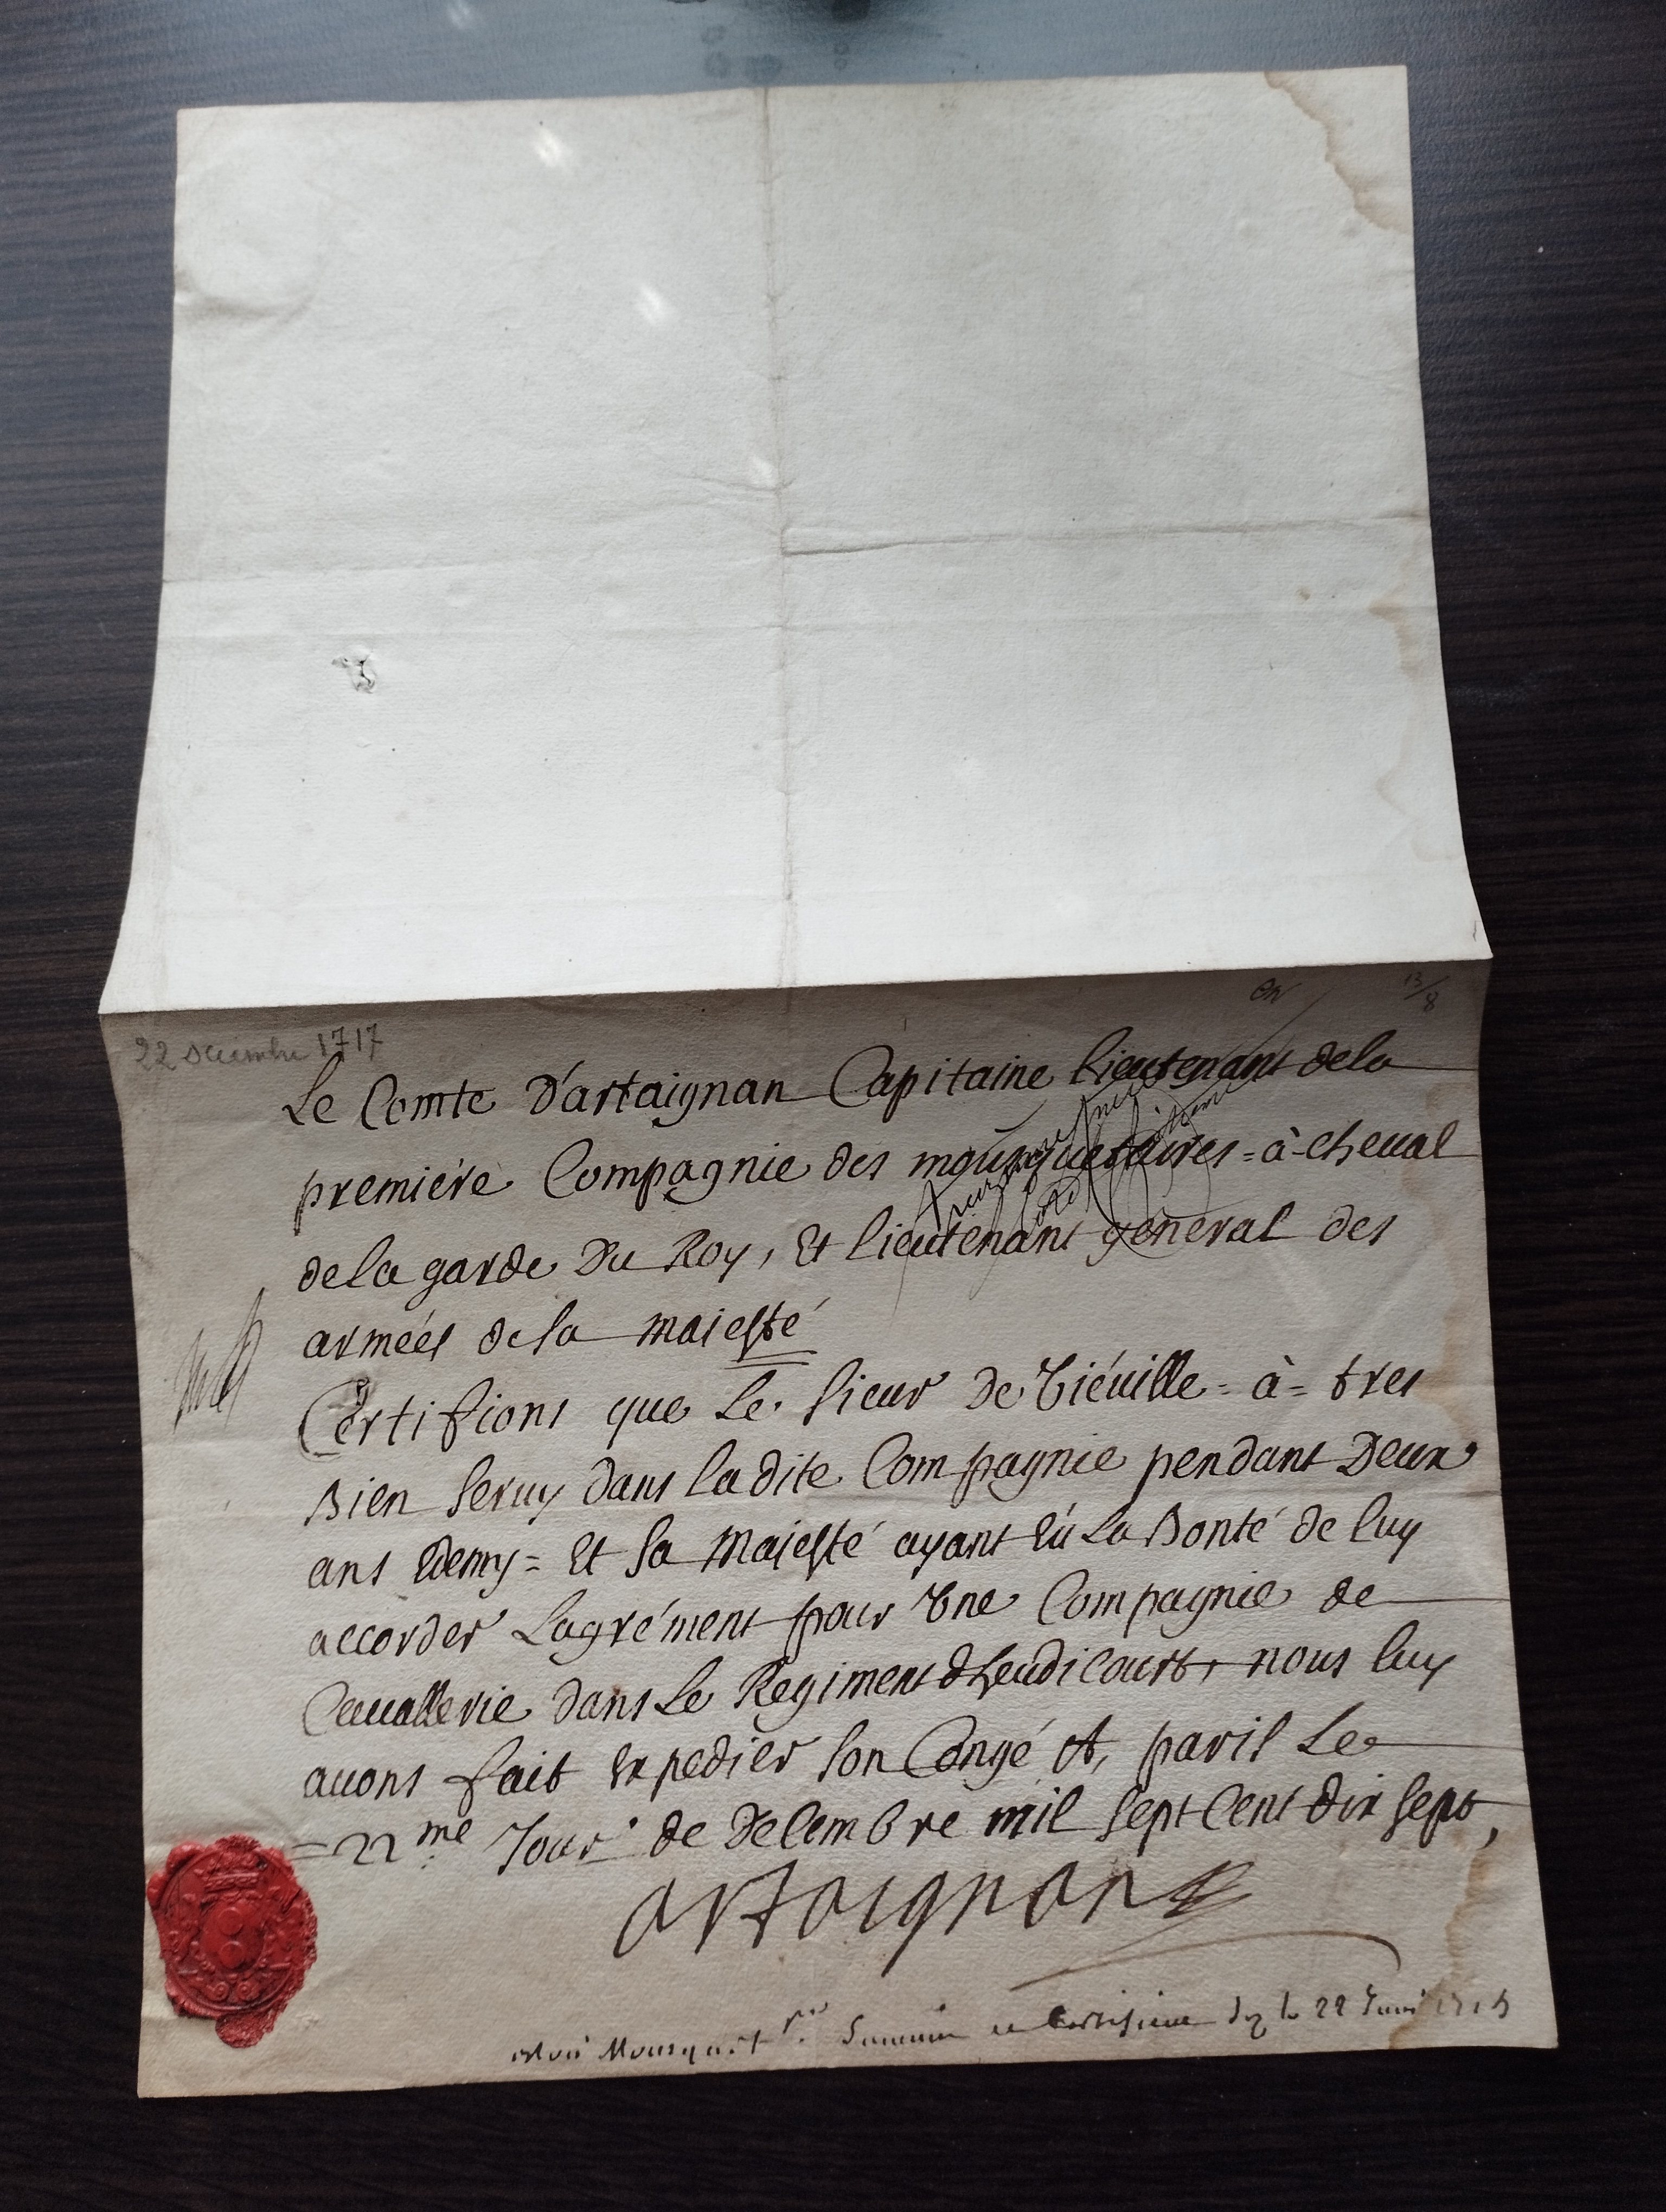 22 Décembre 1717
13/8
Le Comte D'artaignan Capitaine lieutenant dela
premiére Compagnie des mousquetaires = à cheual
dela garde Du Roy, Et lieutenant general des
armées de sa maiesté
Certifions que Le. sieur de Tiéuille = à = tres
Bien seruy dans ladite Compagnie pendant Deux
ans Edemy = Et sa Maiesté ayant Eú La Bonté de luy
accorder Lagrément pour Vne Compagnie de
Cauallerie dans Le Regiment dheudicourt, nous luy
auons fait Expedier son Congé A, paris Le
= 22 me Jour de Decembre mil sept Cent dix sept,
artaignan
le 22